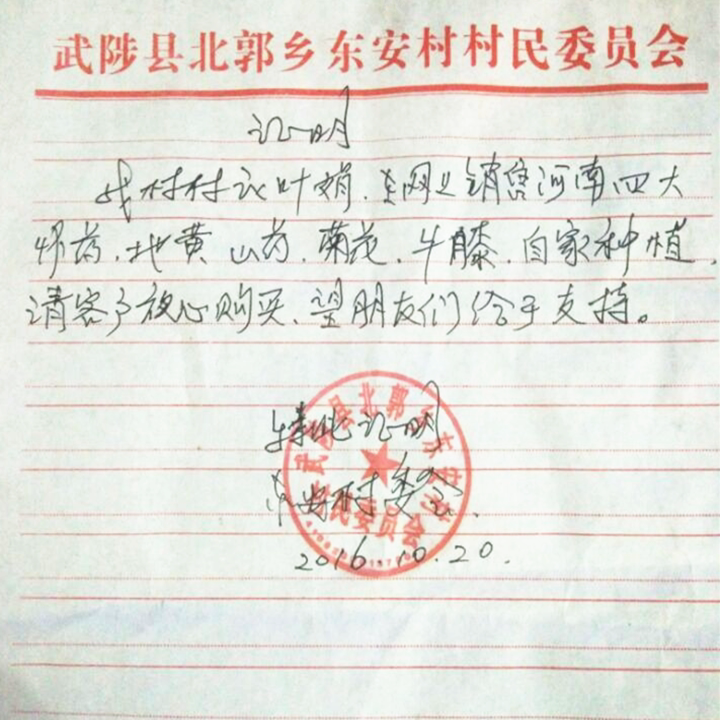 武陟县北郭乡东安村村民委员会
证明
我村村议叶娟.在网上销售河南四大
怀药.地黄.山药.菊花.牛膝.自家种植.
请客户放心购买、望朋友们给于支持。
特此证明
东安村委会.
2016.10.20.
武陟县北郭乡东安村
村民委员会